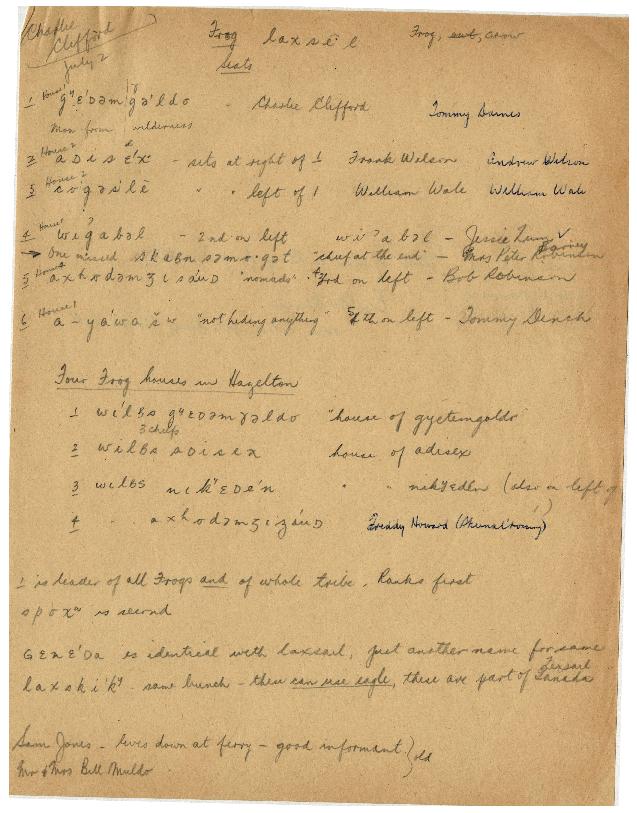 Charlie Clifford
July 2
Frog laxsē'l Frog, owl, crow
Seats
1 House 1 gʸɛ'Dəmgaldo - Charlie Clifford Tommy Barnes
Man from wilderness
2 House 2 aDisɛ'x - sits at right of 1 Frank Wilson Andrew Wilson
3 House 2 " " left of 1 William Wale William Wale
4 House 1 wi'gabəl - 2nd on left wi'ʔabəl - Jessie
→ One missed "chief at the end" - Mrs Peter Robinson
5 House 4 "nomads" 3rd on left - Bob Robinson
6 House 1 a-yáwaśw "not hiding anything" 5th on left - Tommy Dench
Four Frog houses in Hazelton
1 wi'lBs gʸɛDəmɣaldo "house of gyetemgoldo"
3 chefs
2 wilBs aDisɛx house of adisex
3 wilBs nik'ʸɛDe'n " " nikʸedēn (also on left of
4 " axʰodəmgizáuD Freddy Howard
1 is leader of all Frogs and of whole tribe. Ranks first
spoxʷ is second
Gɛnɛ'Da is identical with laxsail, just another name for same
laxski'kʸ same bunch - they can use eagle, these are part of laxsail Ganada
Sam Jones - lives down at ferry - good informant } old
Mr & Mrs Bill Muldo